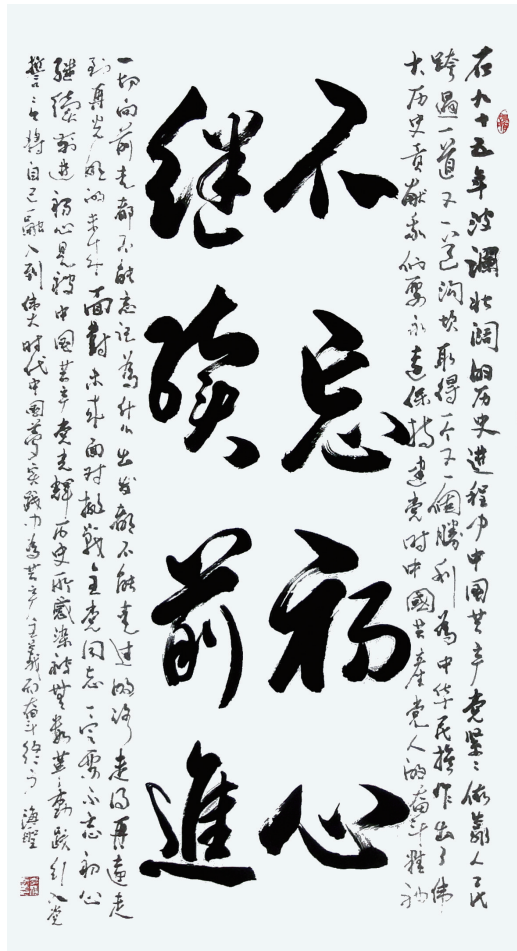 在九十五年波澜壮阔的历史进程中中国共产党紧紧依靠人民
跨过一道又一道沟坎取得一个又一個勝利為中华民族作出了伟
大历史贡献我们要永远保持建党时中國共產党人的奋斗精神
不忘初心
继续前進
一切向前走都不能忘记為什么出发都不能走过的路走得再遠走
到再光辉的未来面對未来面对挑戰全党同志一定要不忘初心
继续前进初心是被中国共产党光輝历史所感染被無数英
誓言将自己融入到偉大时代中國夢实践中為共产主義而奋斗终